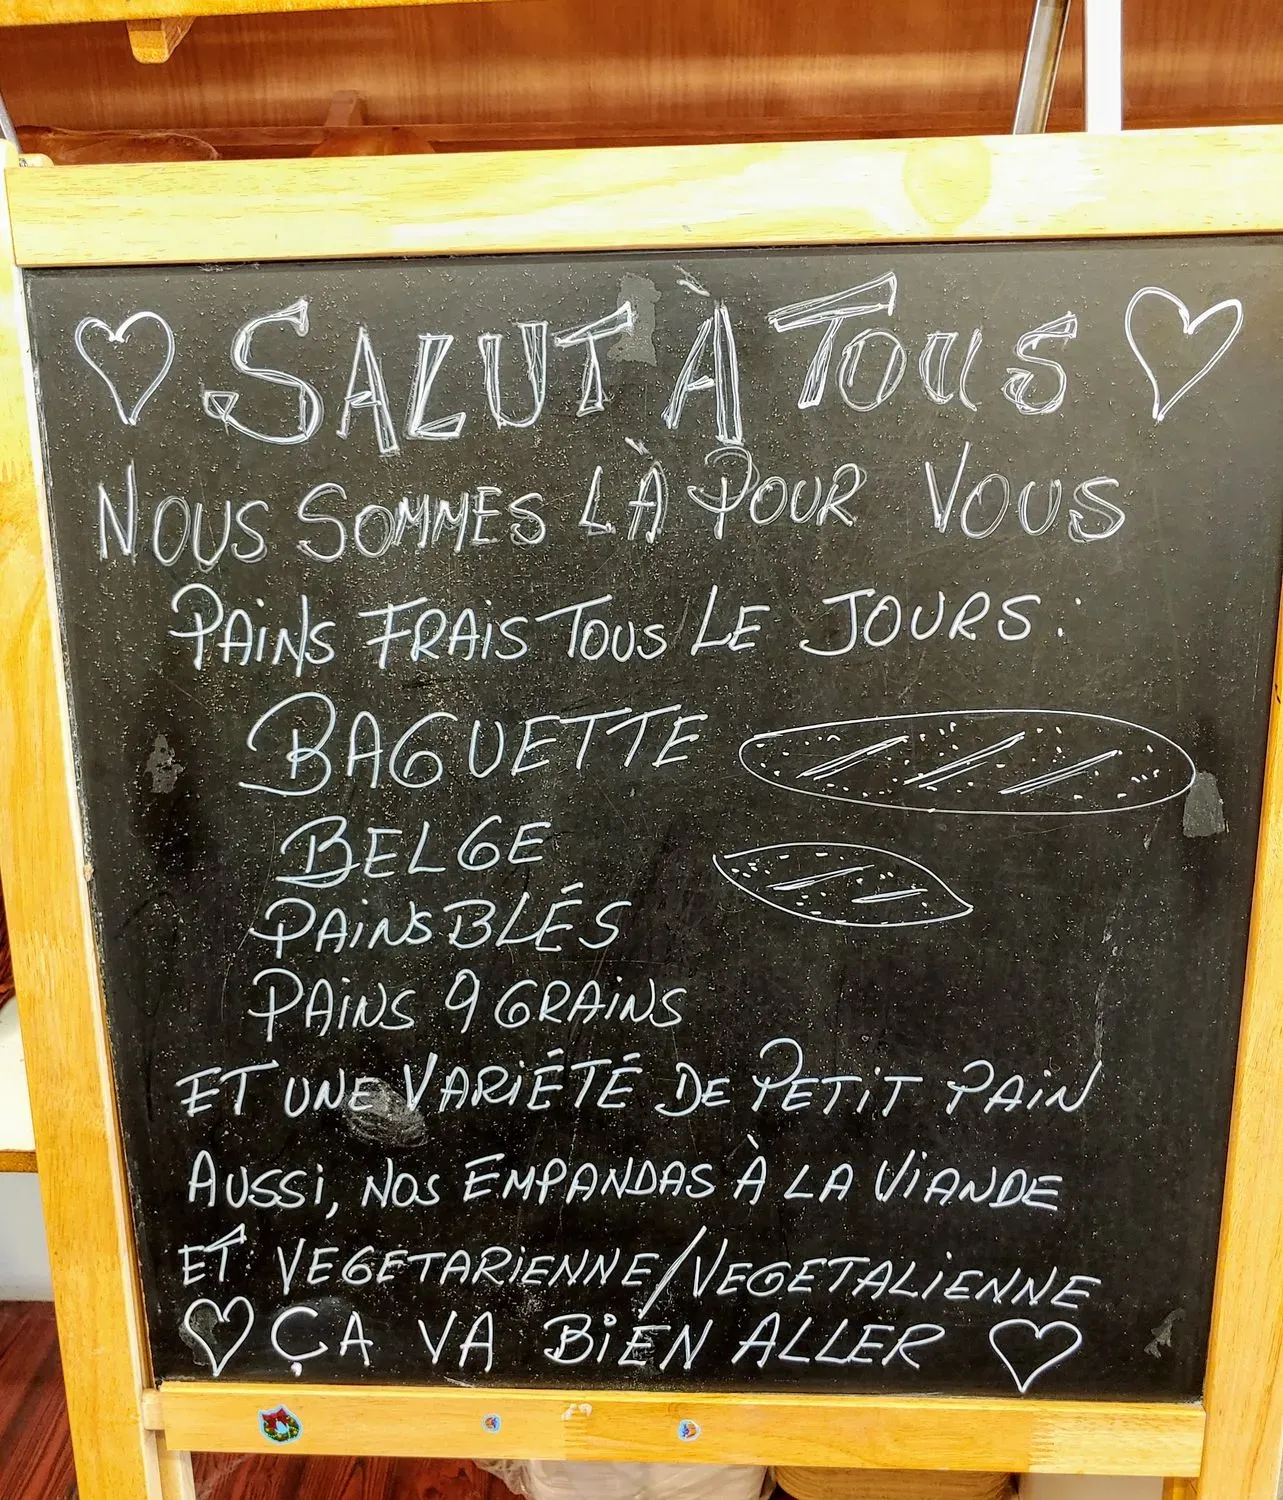 ♡ SALUT À TOUS ♡
NOUS SOMMES LÀ POUR VOUS
PAINS FRAIS TOUS LE JOURS :
BAGUETTE
BELGE
PAINS BLÉS
PAINS 9 GRAINS
ET UNE VARIÉTÉ DE PETIT PAIN
AUSSI, NOS EMPANDAS À LA VIANDE
ET VEGETARIENNE/VEGETALIENNE
♡ ÇA VA BIEN ALLER ♡